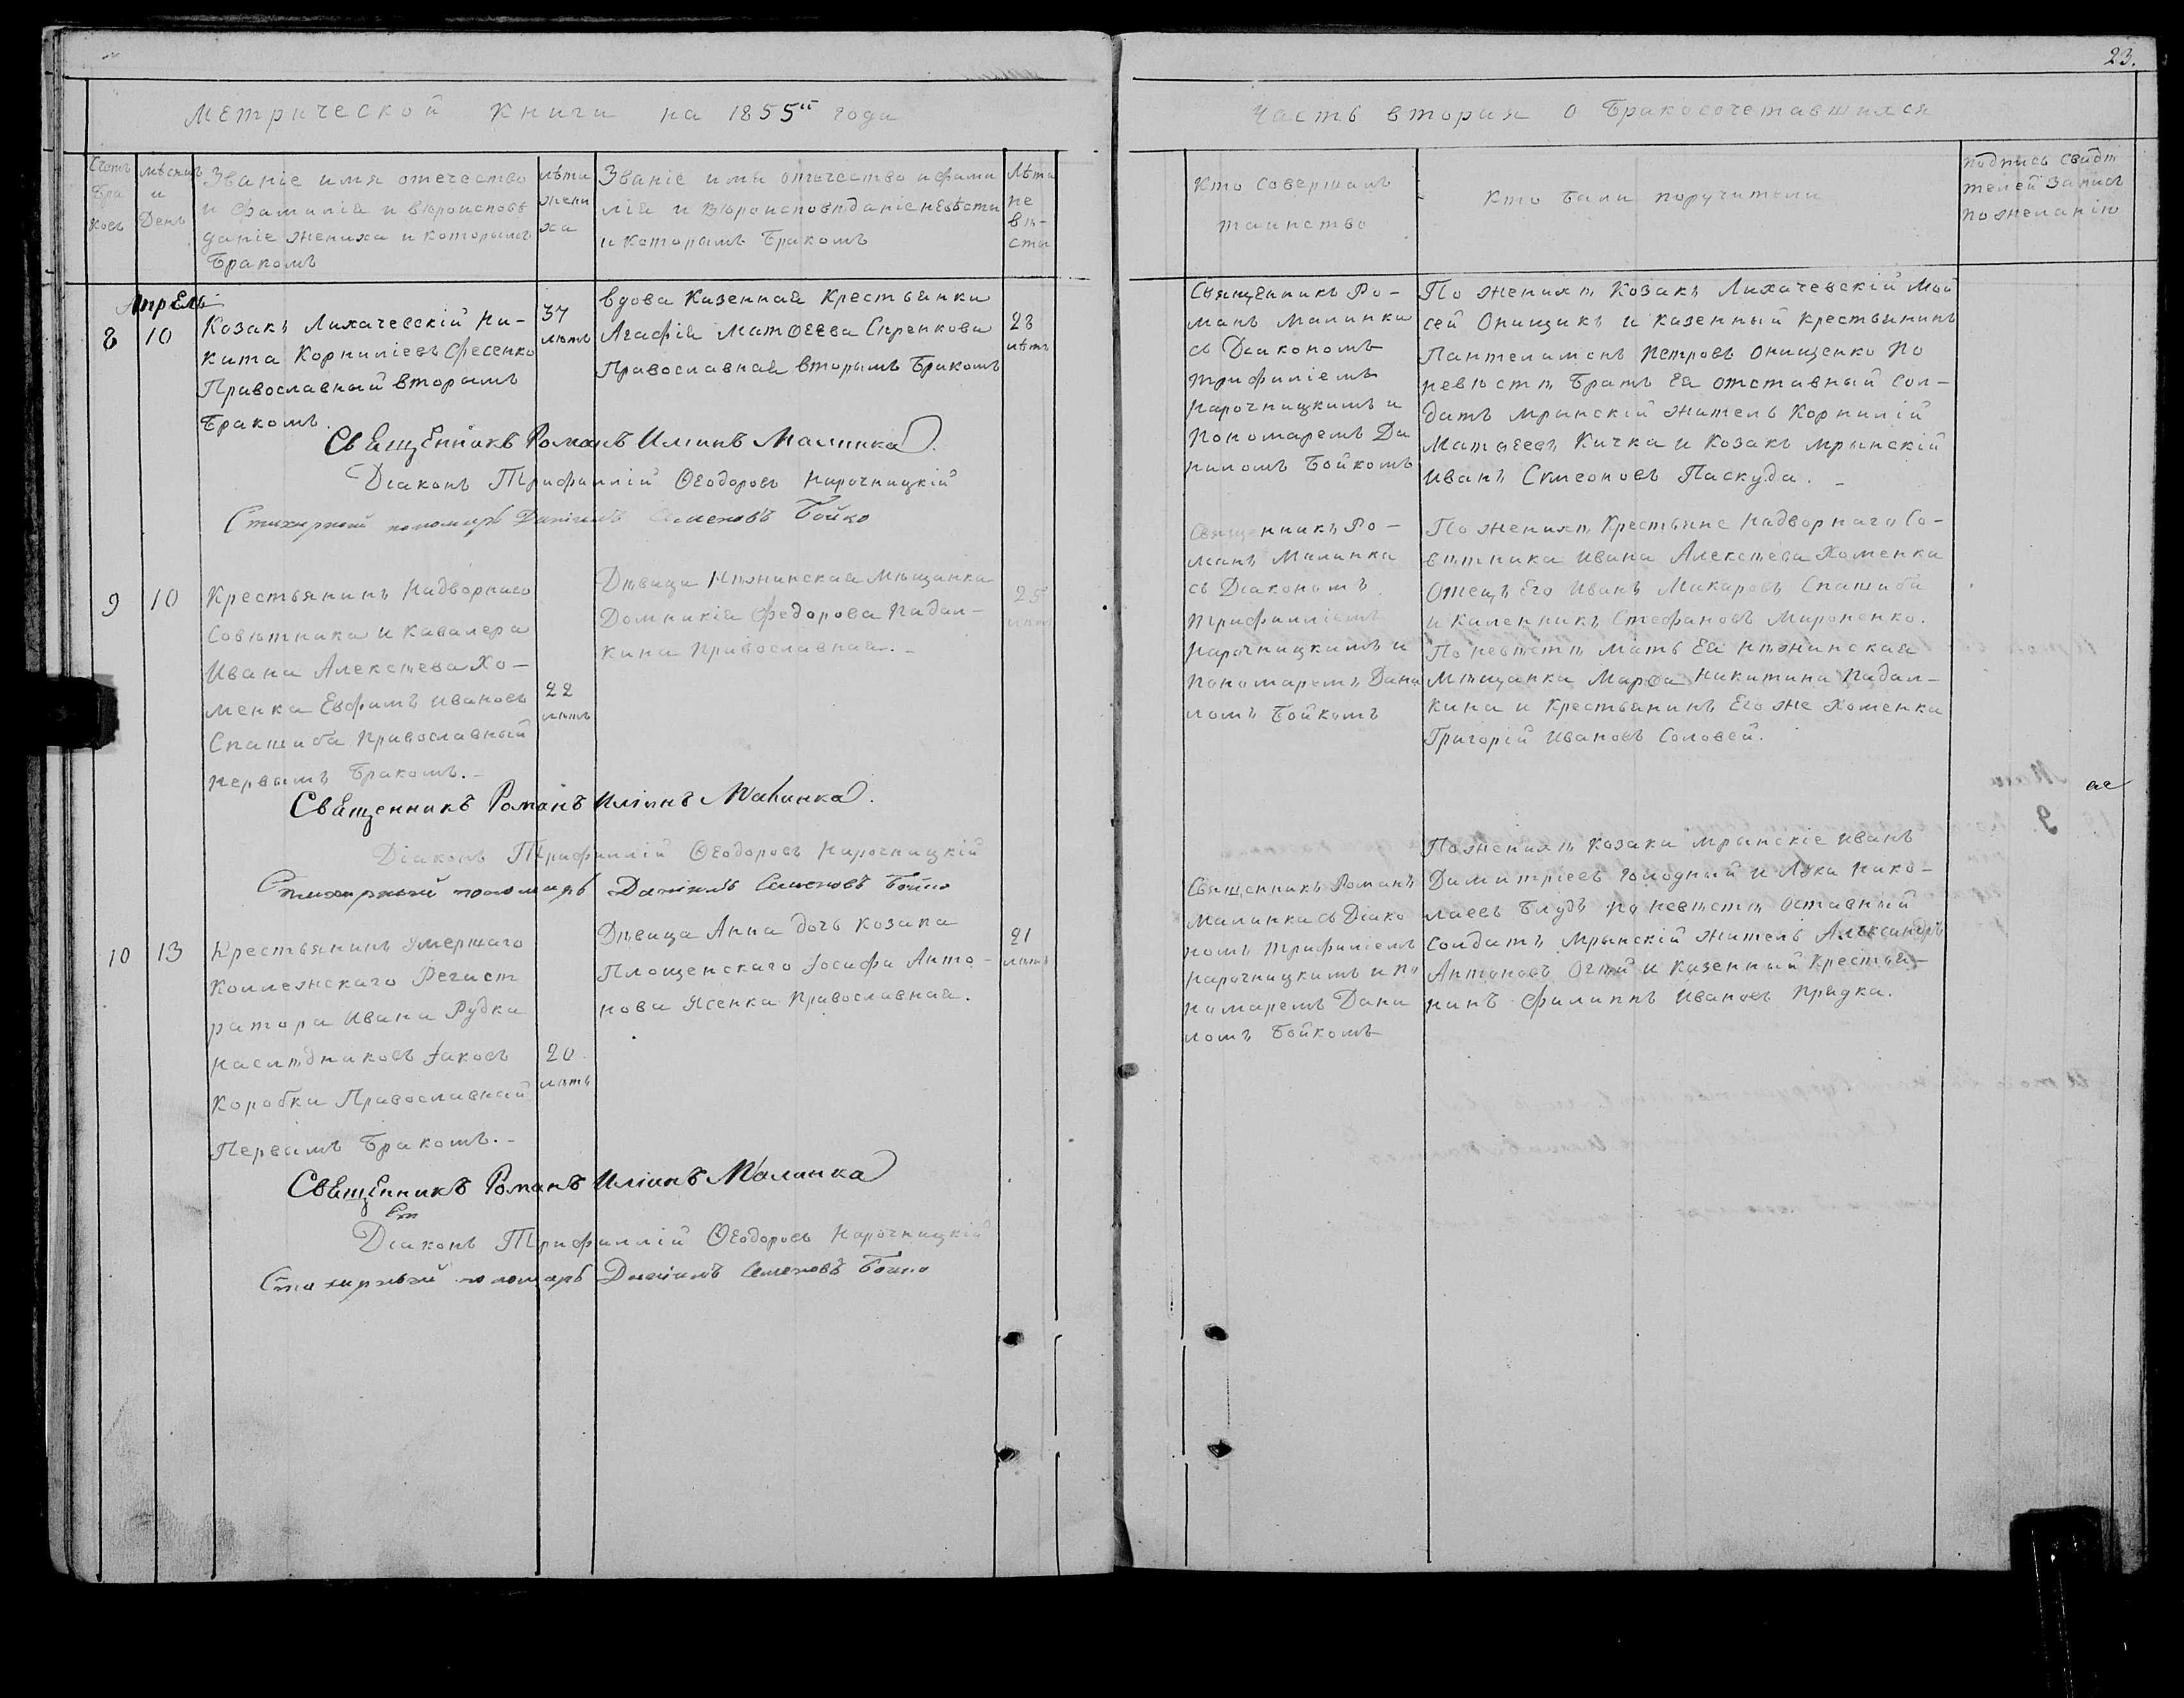 23.
Метрической книги на 1855й года
Часть вторая о Бракосочетавшихся
Счетъ
Бра
ковъ
мѣсяцъ
и
День
Званіе имя отечество
и фамилія и вѣроисповѣ
даніе жениха и которымъ
Бракомъ
лѣта
жени
ха
Званіе имя отечество и фами
лія и вѣроисповѣданіе невѣсты
и которымъ Бракомъ
Лѣта
не
вѣ-
сты
Кто совершалъ
таинство
Кто были поручители
подпись свидѣ
телей записи
по желанію
Апрель
8
10
Козакъ Лихачевскій Ни-
кита Корниліевъ Фесенко
Православный вторымъ
Бракомъ.
37
лѣтъ
вдова Казенная Крестьянка
Агафія Матѳеева
Православная вторымъ Бракомъ
28
лѣтъ
Священникъ Ро-
манъ Малинка
съ Діакономъ
Трифиліемъ
Нарочницкимъ и
Пономаремъ Да
ниломъ Бойкомъ
По женихѣ Козакъ Лихачевскій Мой
сей Онищикъ и казенный крестьянинъ
Пантелимонъ Петровъ Онищенко По
невѣстѣ Братъ Ея отставный сол-
датъ мрынскій житель Корнилій
Матѳеевъ Кичка и Козакъ мрынскій
Иванъ Сѵмеоновъ Паскуда.
Священникъ Романъ Иліинъ Малинка.
Діаконъ Трифиллій Ѳеодоровъ Нарочницкій
Стихарный пономарь Даніилъ Семеновъ Бойко
9
10
Крестьянинъ Надворнаго
Совѣтника и кавалера
Ивана Алексѣева Хо-
менка Евфимъ Ивановъ
Спашиба Православный
первымъ Бракомъ.-
22
лѣтъ
Дѣвица Нѣжинская Мѣщанка
Домникія Федорова Падал-
кина Православная.-
25
лѣтъ
Священникъ Ро-
манъ Малинка
съ Діакономъ
Трифилліемъ
Нарочницкимъ и
Пономаремъ Дани
ломъ Бойкомъ
По женихѣ Крестьяне Надворнаго Со-
вѣтника Ивана Алексѣева Хоменка
Отецъ Его Иванъ Макаровъ Спашиба
и Каленникъ Стефановъ Мироненко.
По невѣстѣ Мать Ея Нѣжинская
Мѣщанка Марѳа Никитина Падал-
кина и Крестьянинъ Его же Хоменка
Григорій Ивановъ Соловей.
Священникъ Романъ Иліинъ Малинка.
Діаконъ Трифиллій Ѳеодоровъ Нарочницкій
Стихарный пономарь Даніилъ Семеновъ Бойко
10
13
Крестьянинъ умершаго
Коллежскаго Регист
ратора Ивана Рудка
наслѣдниковъ Іаковъ
Коробка Православный
Первымъ Бракомъ.-
20
лѣтъ
Дѣвица Анна дочь козака
Площенскаго Іосифа Анто-
нова Ясенка Православная.
21
лѣтъ
Священникъ Романъ
Малинка съ Діако
номъ Трифиліемъ
Нарочницкимъ и по
номаремъ Дани
ломъ Бойкомъ
По женихѣ Козаки Мрынскіе Иванъ
Димитріевъ Голодный и Лука Нико-
лаевъ Блудъ по невѣстѣ Оставный
Солдатъ Мрынскій житель Александръ
Антоновъ и Казенный Крестья-
нинъ Филиппъ Ивановъ Прядка.
Священникъ Романъ Иліинъ Малинка
Діаконъ Трифиллій Ѳеодоровъ Нарочницкій
Стихарный пономарь Даніилъ Семеновъ Бойко